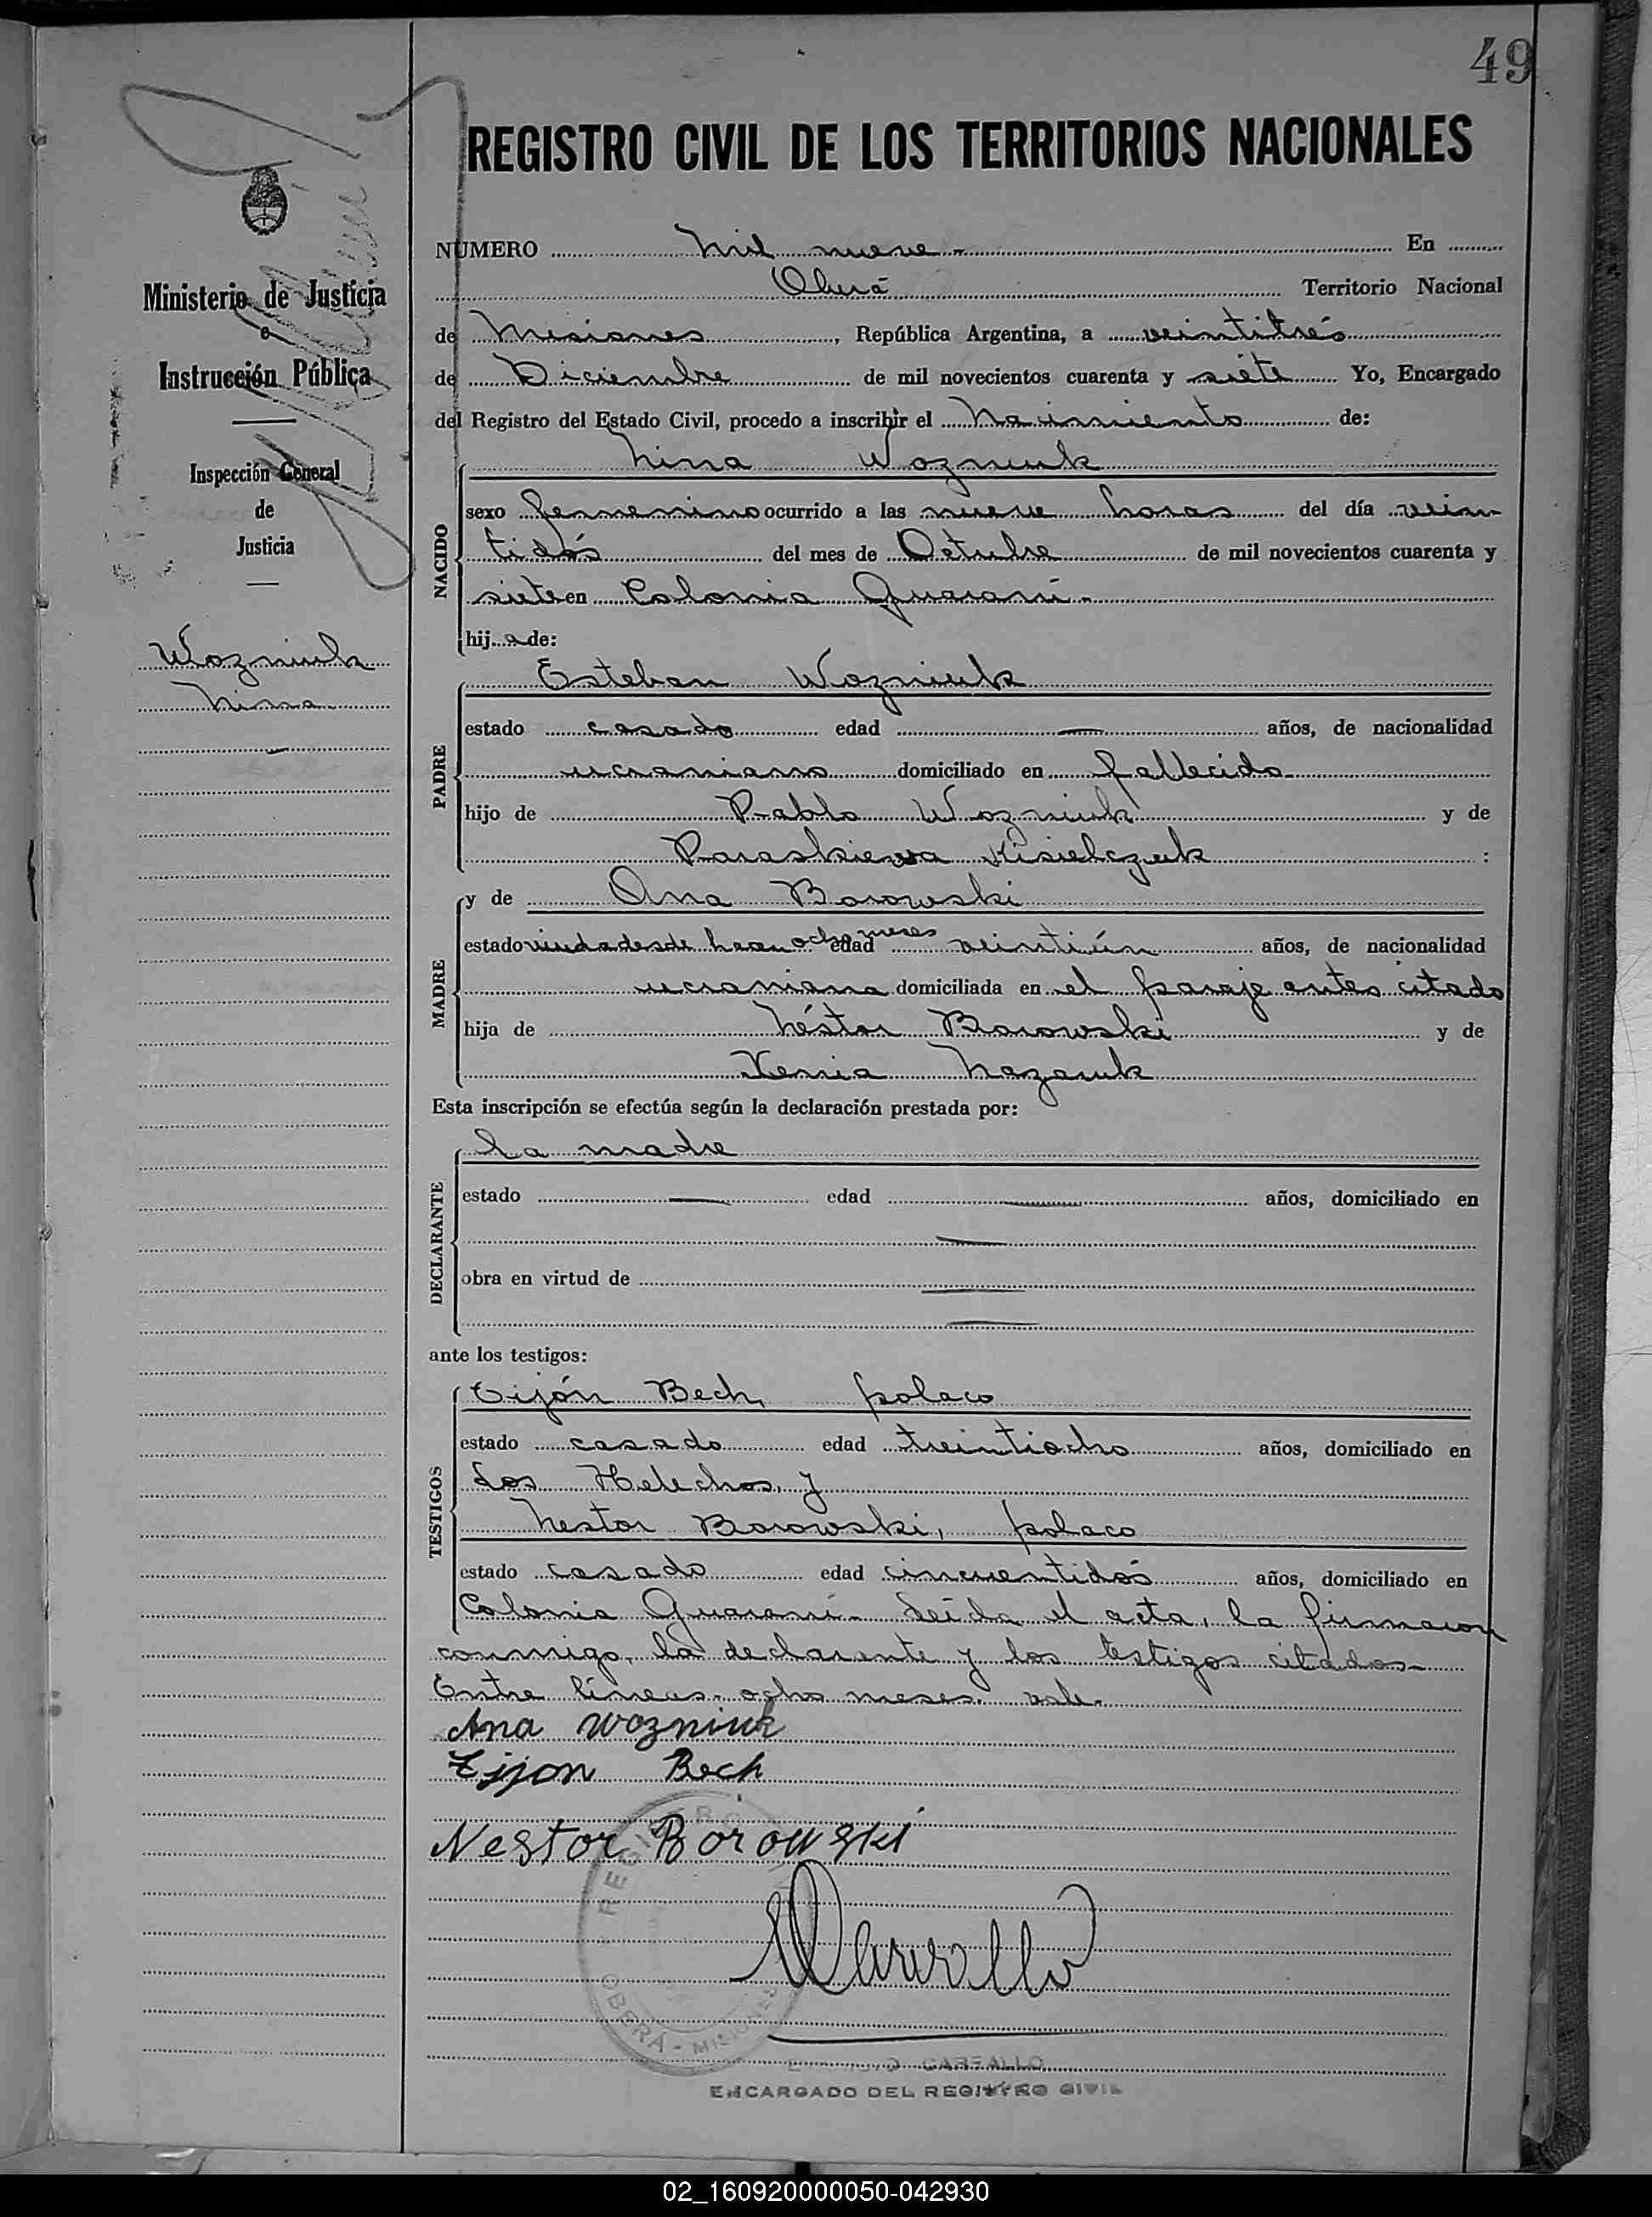 49
REGISTRO CIVIL DE LOS TERRITORIOS NACIONALES
Ministerio de Justicia
e
Instrucción Pública
Inspección General
de
Justicia
Wozniuk
Nina
NUMERO Mil nueve.- En
Oberá Territorio Nacional
de Misiones, República Argentina, a veintitrés
de Diciembre de mil novecientos cuarenta y siete Yo, Encargado
del Registro del Estado Civil, procedo a inscribir el Nacimiento de:
NACIDO
Nina Wozniuk
sexo femenino ocurrido a las nueve horas del día vein
tidós del mes de Octubre de mil novecientos cuarenta y
siete en Colonia Guaraní.-
hij a de:
PADRE
Esteban Wozniuk
estado casado edad — años, de nacionalidad
ucraniano domiciliado en fallecido
hijo de Pablo Wozniuk y de
Paraskiewa Kisielczuk :
MADRE
y de Ana Borowski
estado viuda desde hacen ocho meses edad veintiún años, de nacionalidad
ucraniana domiciliada en el paraje antes citado
hija de Néstor Borowski y de
Xenia Nazaruk
Esta inscripción se efectúa según la declaración prestada por:
DECLARANTE
la madre
estado — edad — años, domiciliado en
—
obra en virtud de —
—
ante los testigos:
TESTIGOS
Tijón Bech, polaco
estado casado edad treintiocho años, domiciliado en
Los Helechos, y
Nestor Borowski, polaco
estado casado edad cincuentidós años, domiciliado en
Colonia Guaraní.- Leída el acta, la firmaron
conmigo, la declarante y los testigos citados.-
Entre líneas. ocho meses. vale.-
Ana Wozniuk
Tijon Bech
Nestor Borowski
REGISTRO
OBERÁ - MISIONES
CARBALLO
ENCARGADO DEL REGISTRO CIVIL
02_160920000050-042930